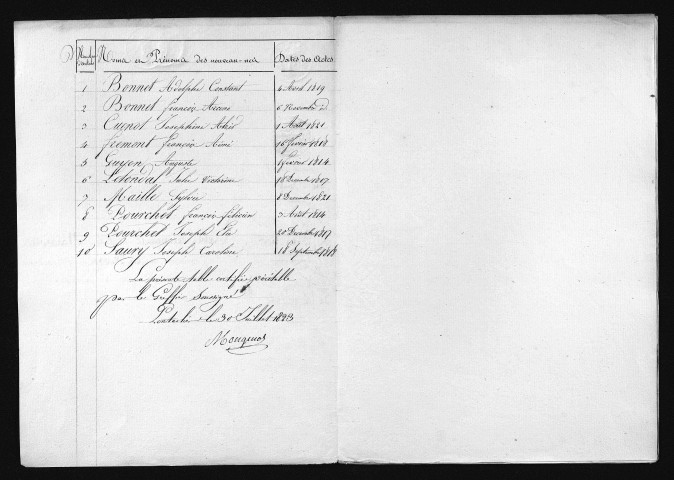 Noms et Prénoms des nouveau-nés Dates des Actes
1 Bonnet Adolphe Constant 4 Avril 1819
2 Bonnet françois 6 Novembre d
3 Cuenot Josephine 1 Août 1821
4 fremont françois Aimé 16 fevrier 1818
5 Guyon Auguste 1 fevrier 1814
6 Letondal Victorine 18 Decembre 1817
7 Maille Sylvie 8 Decembre 1821
8 Pourchet françois félicien 3 Août 1814
9 Pourchet Joseph 20 Decembre 1817
10 Saury Joseph Caroline 18 Septembre 1818
La présente table certifiée véritable
par le Greffier Soussigné
Pontarlier le 30 Juillet 1823